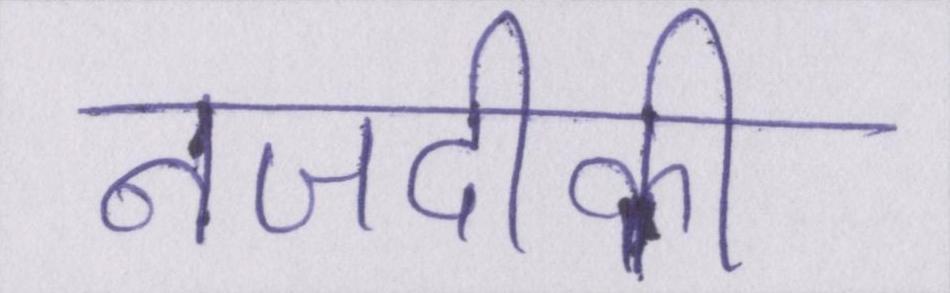 नजदीकी